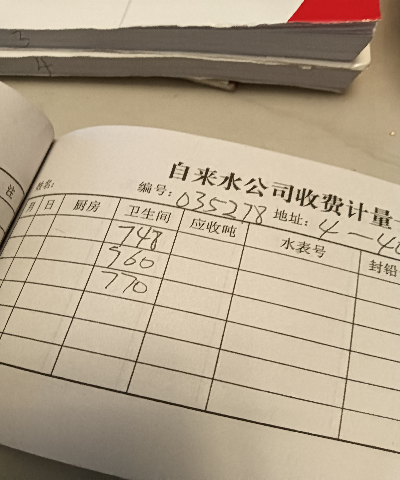 3
4
自来水公司收费计量
注
姓名:
编号: 035278 地址: 4-40
月 日 厨房 卫生间 应收吨 水表号 封铅
748
560
770